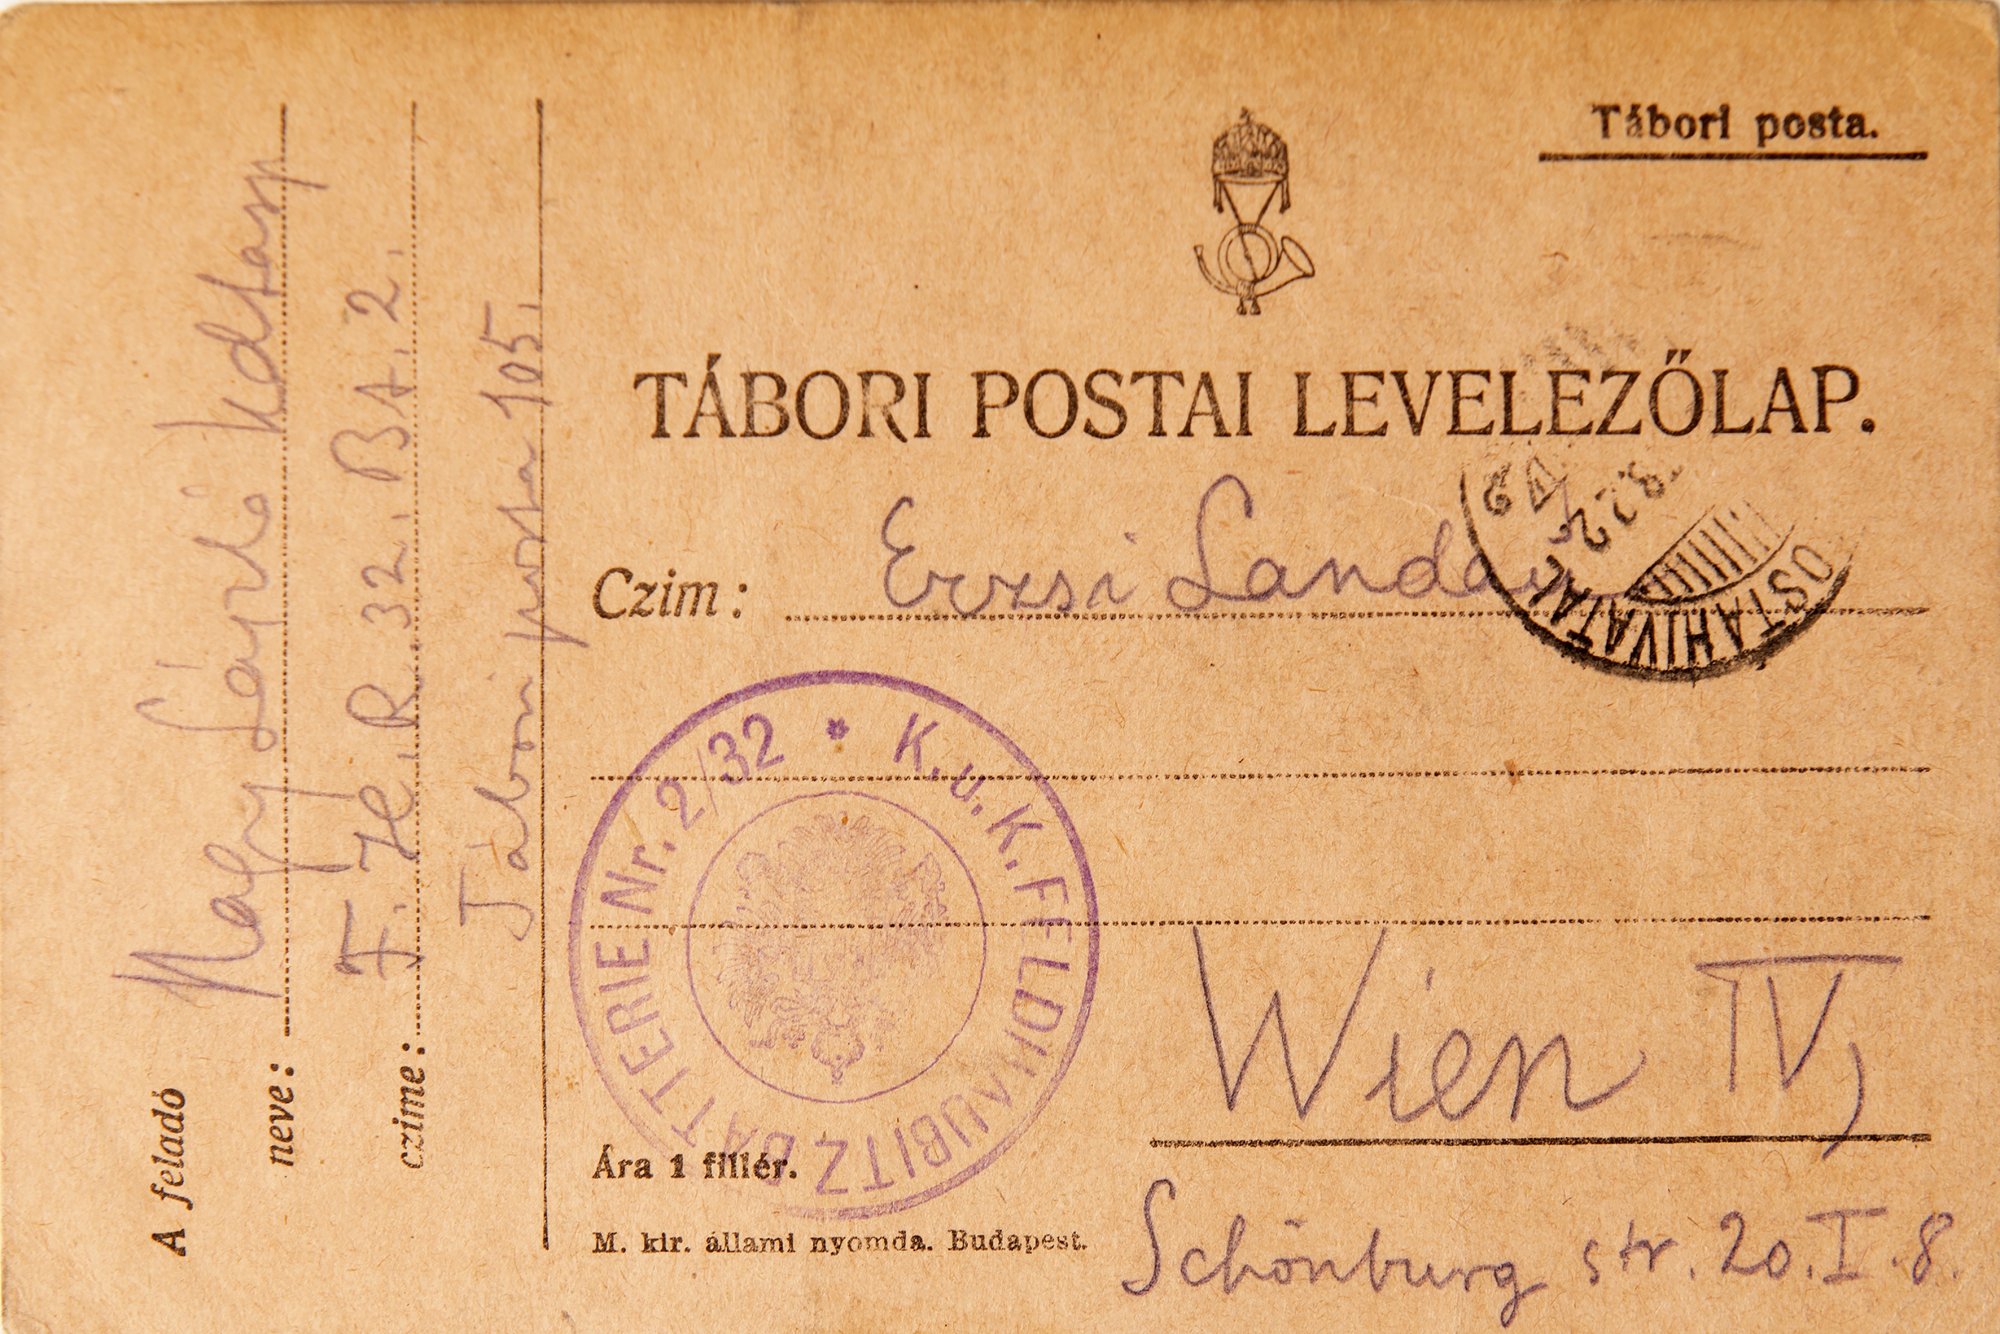 Tábori posta.
TÁBORI POSTAI LEVELEZŐLAP.
Czim: Erzsi Landau
Wien IV,
Schönburg str. 20. I. 8.
K. u. K. FELDHAUBITZBATTERIE Nr. 2/32 *
POSTAHIVATAL
Ára 1 fillér.
M. kir. állami nyomda. Budapest.
A feladó
neve: Nagy László
czime: F. H. R. 32. Bt. 2.
Tábori posta 105.